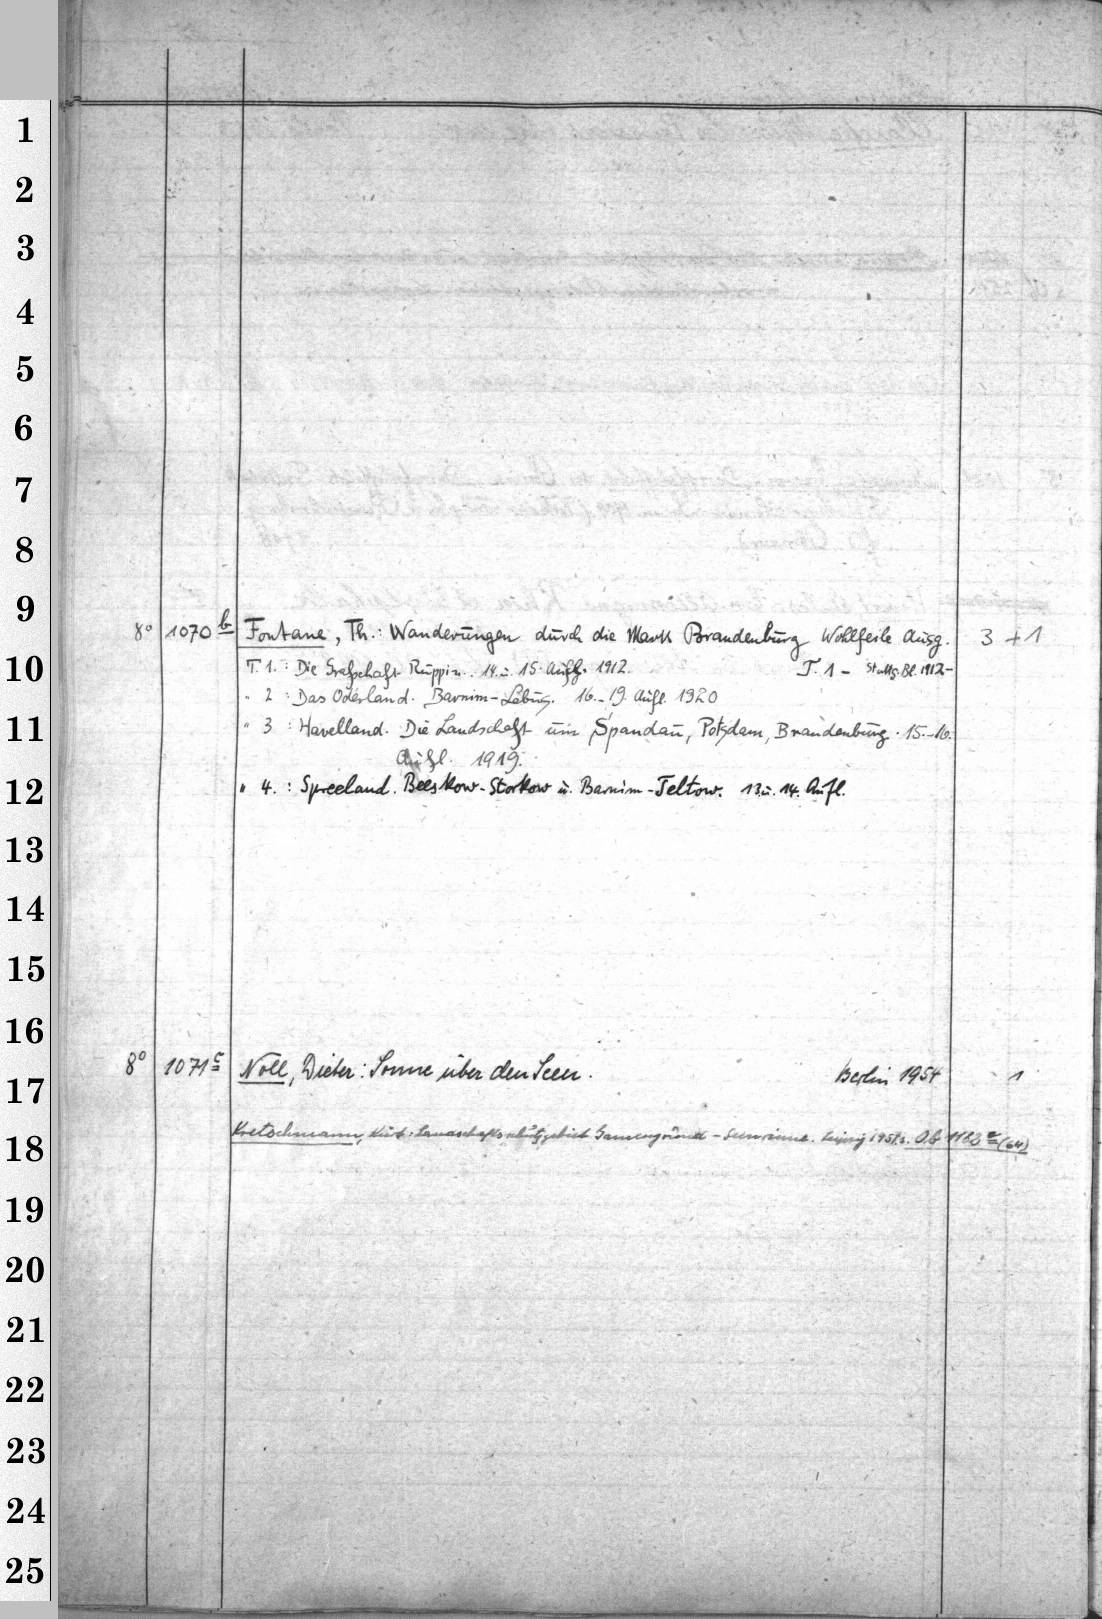 1
2
3
4
5
6
7
8
9
8° 1070 b Fontane, Th.: Wanderungen durch die Mark Brandenburg Wohlfeile Ausg. 3 + 1
10
T. 1. : Die Grafschaft Ruppin. 14. u. 15. Aufl. 1912. T. 1 – Stuttg. Bl. 1912–
" 2 : Das Oderland. Barnim-Lebus. 16.–19. Aufl. 1920
11
" 3 : Havelland. Die Landschaft um Spandau, Potsdam, Brandenburg. 15.–16.
Aufl. 1919.
12
" 4. : Spreeland. Beeskow-Storkow u. Barnim-Teltow. 13. u. 14. Aufl.
13
14
15
16
8° 1071 c Noll, Dieter: Sonne über den Seen. Berlin 1954 1
17
Kretschmann, Kurt: Landschaftsschutzgebiet Gamengrund – Seenrinne. Leipzig 1957. Ab (64)
18
19
20
21
22
23
24
25